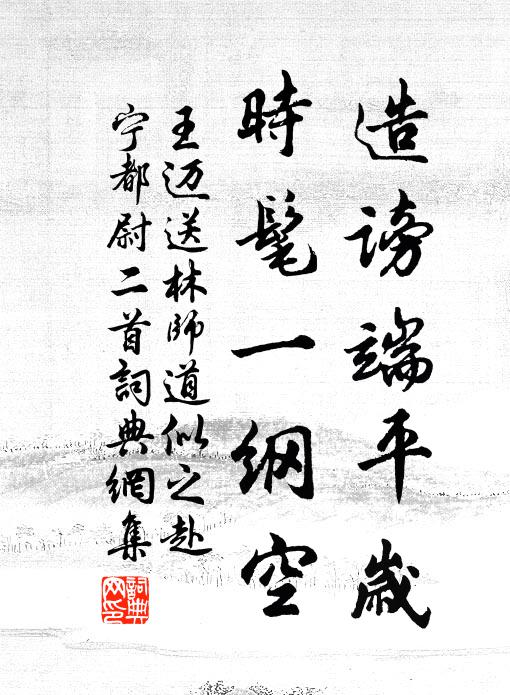 造谤端平歲
時髦一綱空
王迈送林師道似之赴
宁都尉二首詞典網集
詞典